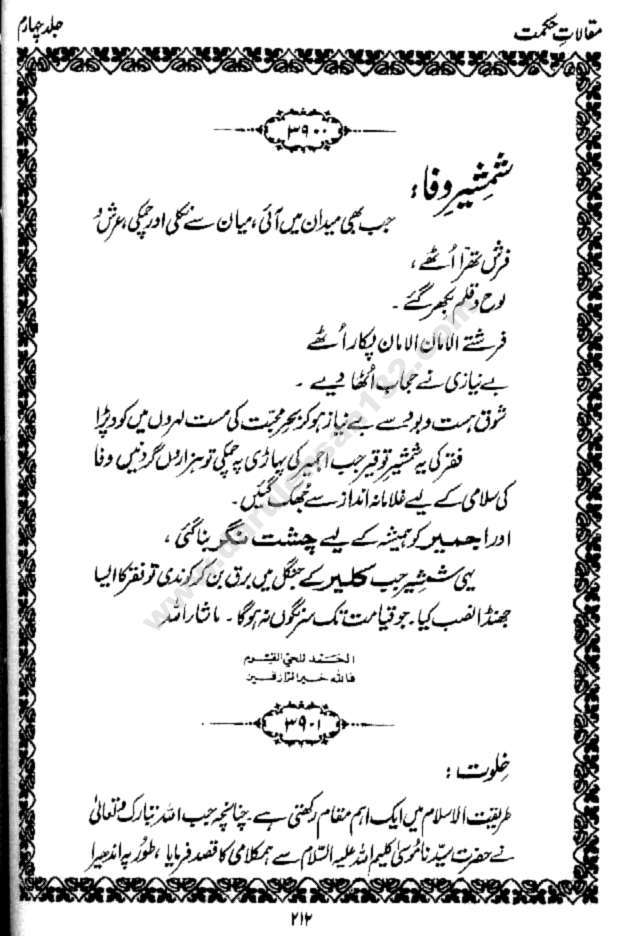 مقالاتِ حکمت
جلد چہارم
۳۹۰۰
شمشیرِ وفا:
جب بھی میدان میں آئی، میان سے نکلی اور چمکی، عرش و
فرش تھرّا اُٹھے،
لوح و قلم بکھر گئے۔
فرشتے الامان الامان پکار اُٹھے
بے نیازی نے حجاب اُٹھا دیے۔
شوق ہست و بود سے بے نیاز ہو کر بحرِ محبّت کی مست لہروں میں کود پڑا
فقر کی یہ شمشیرِ توقیر جب اجمیر کی پہاڑی پہ چمکی تو ہزاروں گردنیں وفا
کی سلامی کے لیے غلامانہ انداز سے جُھک گئیں۔
اور اجمیر کو ہمیشہ کے لیے چشت نگر بنا گئی،
یہی شمشیر جب کلیر کے جنگل میں برق بن کر کوندی تو فقر کا ایسا
جھنڈا نصب کیا۔ جو قیامت تک سرنگوں نہ ہوگا۔ ماشاراللہ
الحمد للحی القیوم
فاللہ خیر الرازقین
۳۹۰۱
خلوت:
طریقت الاسلام میں ایک اہم مقام رکھتی ہے چنانچہ جب اللہ تبارک و تعالیٰ
نے حضرت سیّدنا موسیٰ کلیم اللہ علیہ السّلام سے ہمکلامی کا قصد فرمایا، طُور پہ اندھیرا
۲۱۲